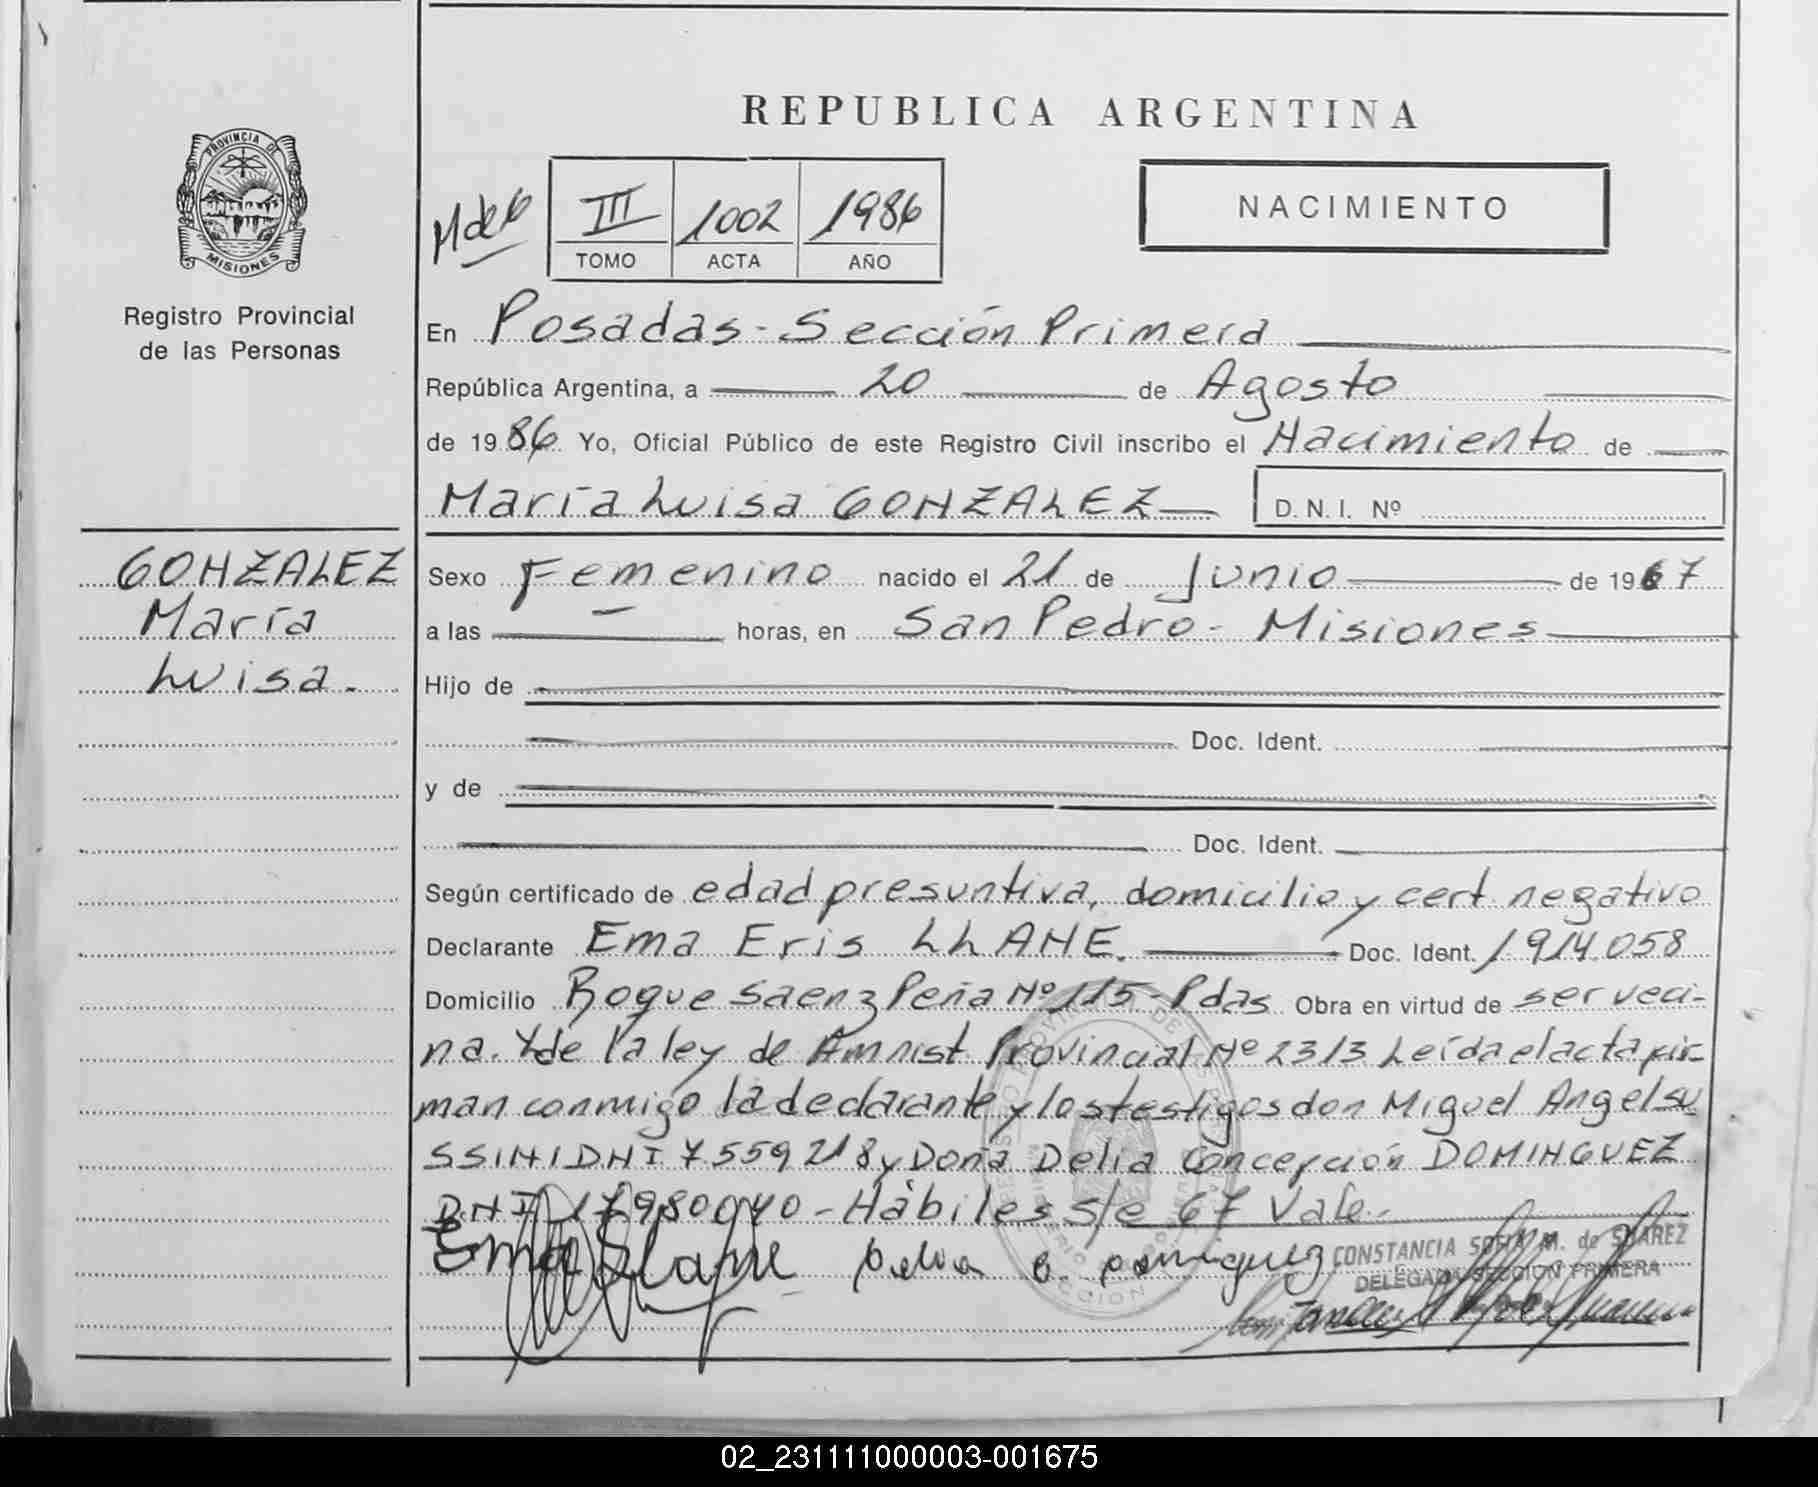 REPUBLICA ARGENTINA
PROVINCIA DE
MISIONES
Registro Provincial
de las Personas
III 1002 1986
TOMO ACTA AÑO
NACIMIENTO
En Posadas - Sección Primera
República Argentina, a 20 de Agosto
de 1986. Yo, Oficial Público de este Registro Civil inscribo el Nacimiento de
María Luisa GONZALEZ D. N. I. Nº
GONZALEZ
María
Luisa.
Sexo Femenino nacido el 21 de Junio de 1967
a las horas, en San Pedro - Misiones
Hijo de
Doc. Ident.
y de
Doc. Ident.
Según certificado de edad presuntiva, domicilio y cert. negativo
Declarante Ema Eris LLANE. Doc. Ident. 1914.058
Domicilio Roque Saenz Peña Nº 115 - Pdas Obra en virtud de ser veci-
na. Y de la ley de Amnist. Provincial Nº 2313 Leída el acta fir-
man conmigo la declarante y los testigos don Miguel Angel SU
SSINI DNI 7559218 y Doña Delia Concepción DOMINGUEZ
DNI 17980040 - Hábiles s/e 67 Vale.-
CONSTANCIA SOFIA M. de SUAREZ
DELEGADA SECCION PRIMERA
02_231111000003-001675